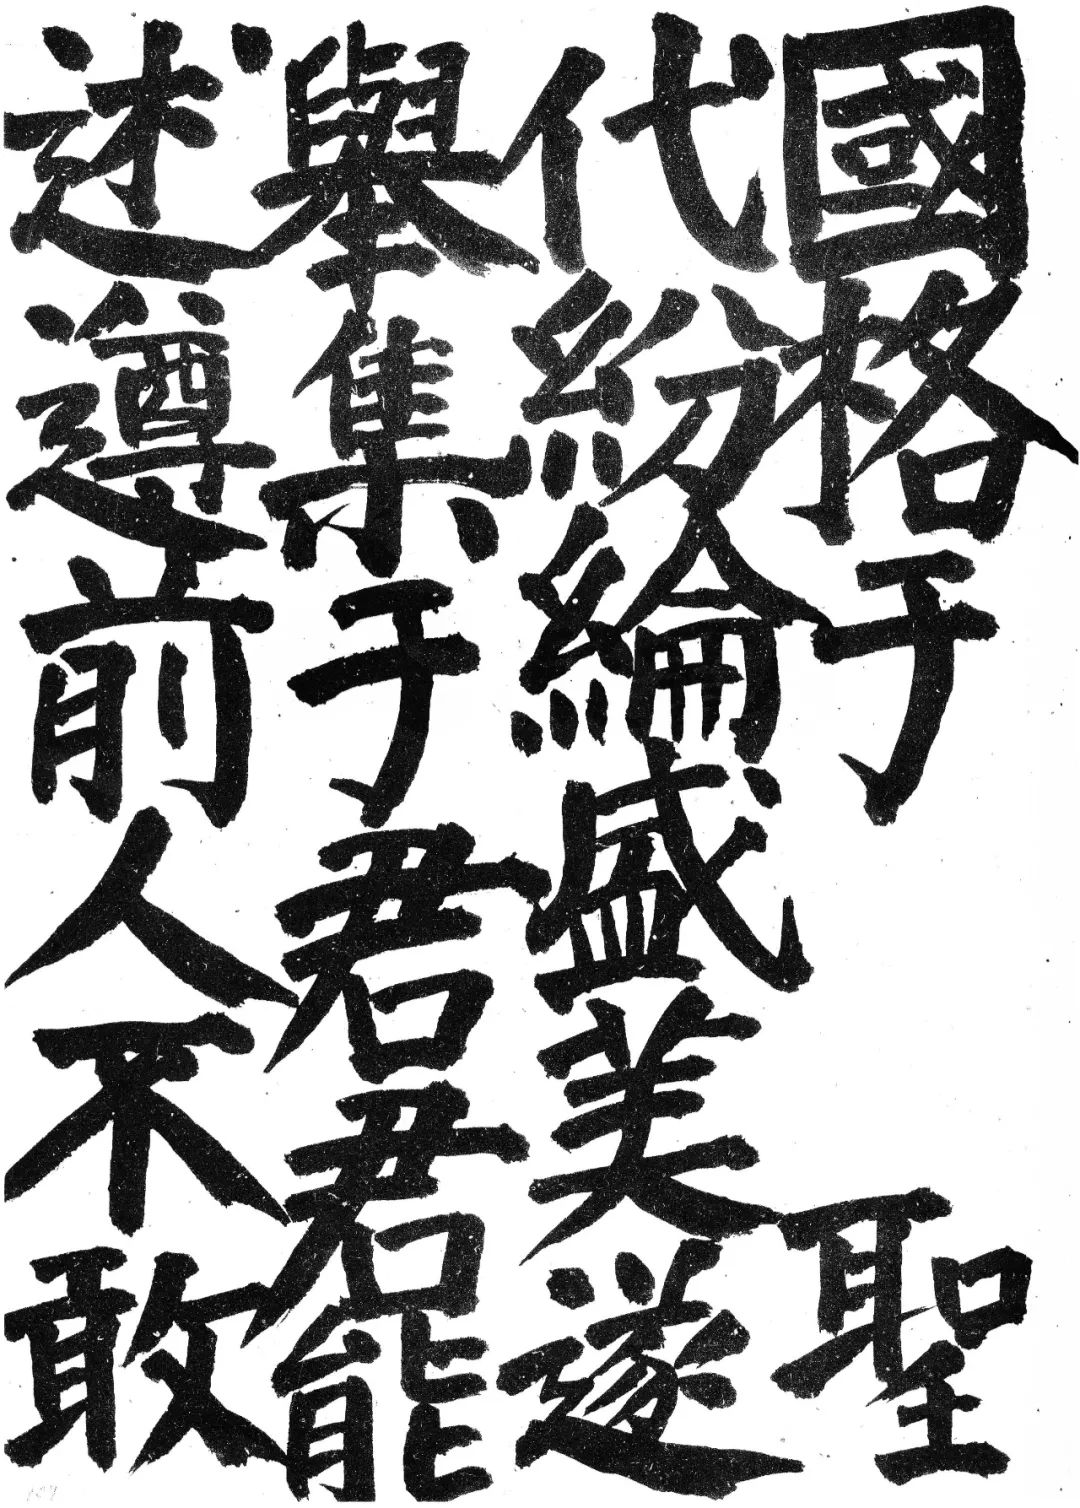 國格于 聖
代紛綸盛美遂
舉集于君君能
述遵前人不敢